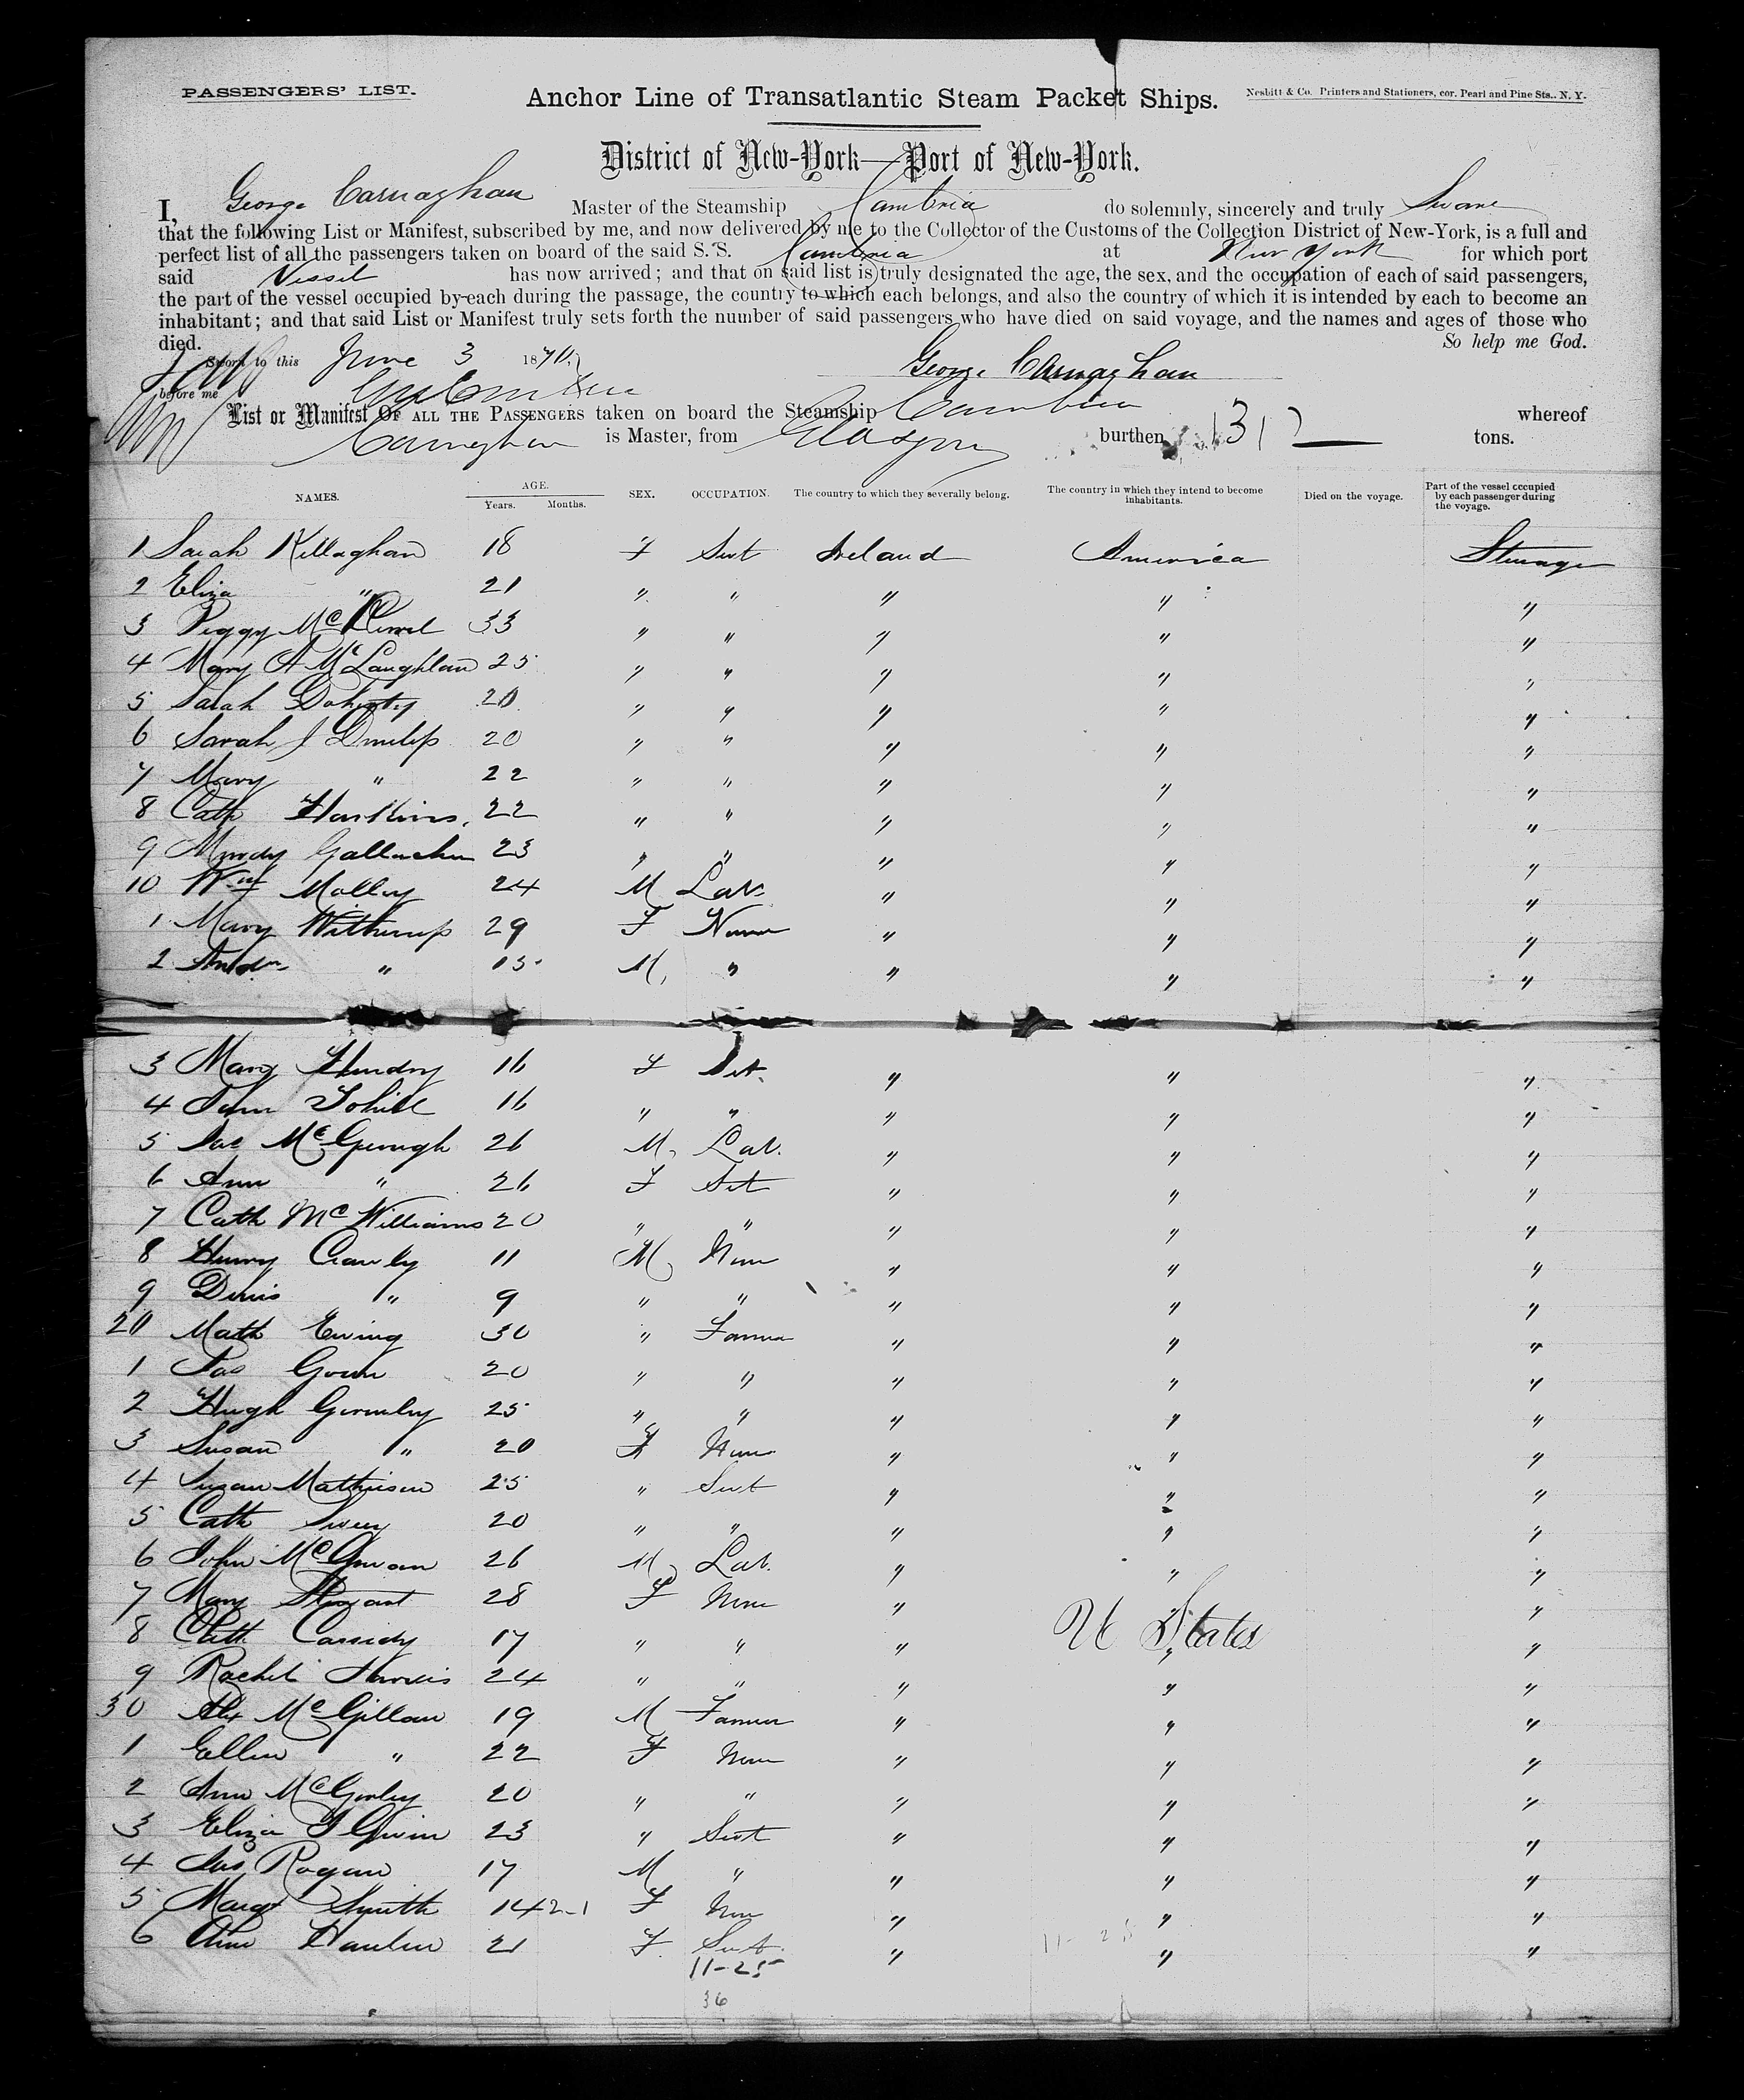 PASSENGERS' LIST.
Anchor Line of Transatlantic Steam Packet Ships.
Nesbitt & Co. Printers and Stationers, cor. Pearl and Pine Sts., N. Y.
District of New-York—Port of New-York.
I, George Carnaghan Master of the Steamship Cambria do solemnly, sincerely and truly Swore
that the following List or Manifest, subscribed by me, and now delivered by me to the Collector of the Customs of the Collection District of New-York, is a full and
perfect list of all the passengers taken on board of the said S. S. Cambria at New York for which port
said Vessel has now arrived; and that on said list is truly designated the age, the sex, and the occupation of each of said passengers,
the part of the vessel occupied by each during the passage, the country to which each belongs, and also the country of which it is intended by each to become an
inhabitant; and that said List or Manifest truly sets forth the number of said passengers who have died on said voyage, and the names and ages of those who
died. So help me God.
Sworn to this June 3 1870, George Carnaghan
before me
List or Manifest OF ALL THE PASSENGERS taken on board the Steamship Cambria whereof
Carnaghan is Master, from Glasgow burthen 1312 tons.
NAMES. AGE. Years. Months. SEX. OCCUPATION. The country to which they severally belong. The country in which they intend to become inhabitants. Died on the voyage. Part of the vessel occupied by each passenger during the voyage.
1 Sarah Killaghan 18 F Svt Ireland America Steerage
2 Eliza " 21 " " " " "
3 Peggy 33 " " " " "
4 Mary A McLaughlan 25 " " " " "
5 Sarah Doherty 20 " " " " "
6 Sarah J Dunlop 20 " " " " "
7 Mary " 22 " " " " "
8 Cath Harkins 22 " " " " "
9 Gallacher 23 " " " " "
10 Wm Molloy 24 M Lab " " "
1 Mary Witherup 29 F None " " "
2 Andw " 13 M " " " "
3 Mary Hendry 16 F Svt " " "
4 Tohill 16 " " " " "
5 Jas McGeough 26 M Lab. " " "
6 Ann " 26 F Svt " " "
7 Cath McWilliams 20 " " " " "
8 Henry Crawly 11 M None " " "
9 Denis " 9 " " " " "
20 Math Ewing 30 " Farmer " " "
1 Jas 20 " " " " "
2 Hugh Gormley 25 " " " " "
3 Susan " 20 F None " " "
4 Susan Mathieson 25 " Svt " " "
5 Cath 20 " " " " "
6 John 26 M Lab. " " "
7 Mary 28 F None " " "
8 Cath Cassidy 17 " " " U States "
9 Rachel 24 " " " " "
30 Alex McGillan 19 M Farmer " " "
1 Ellen " 22 F None " " "
2 Ann McGinley 20 " " " " "
3 Eliza 23 " Svt " " "
4 Jas Rogan 17 M " " " "
5 Margt Smith 14 2-1 F None " " "
6 Ann Hanlon 21 F Svt. " 11-25 " "
11-25
36